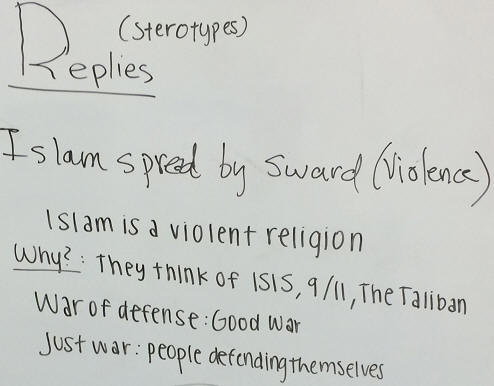 (sterotypes)
Replies
Islam spread by sward (violence)
Islam is a violent religion
Why?: They think of ISIS, 9/11, The Taliban
War of defense: Good war
Just war: people defending themselves